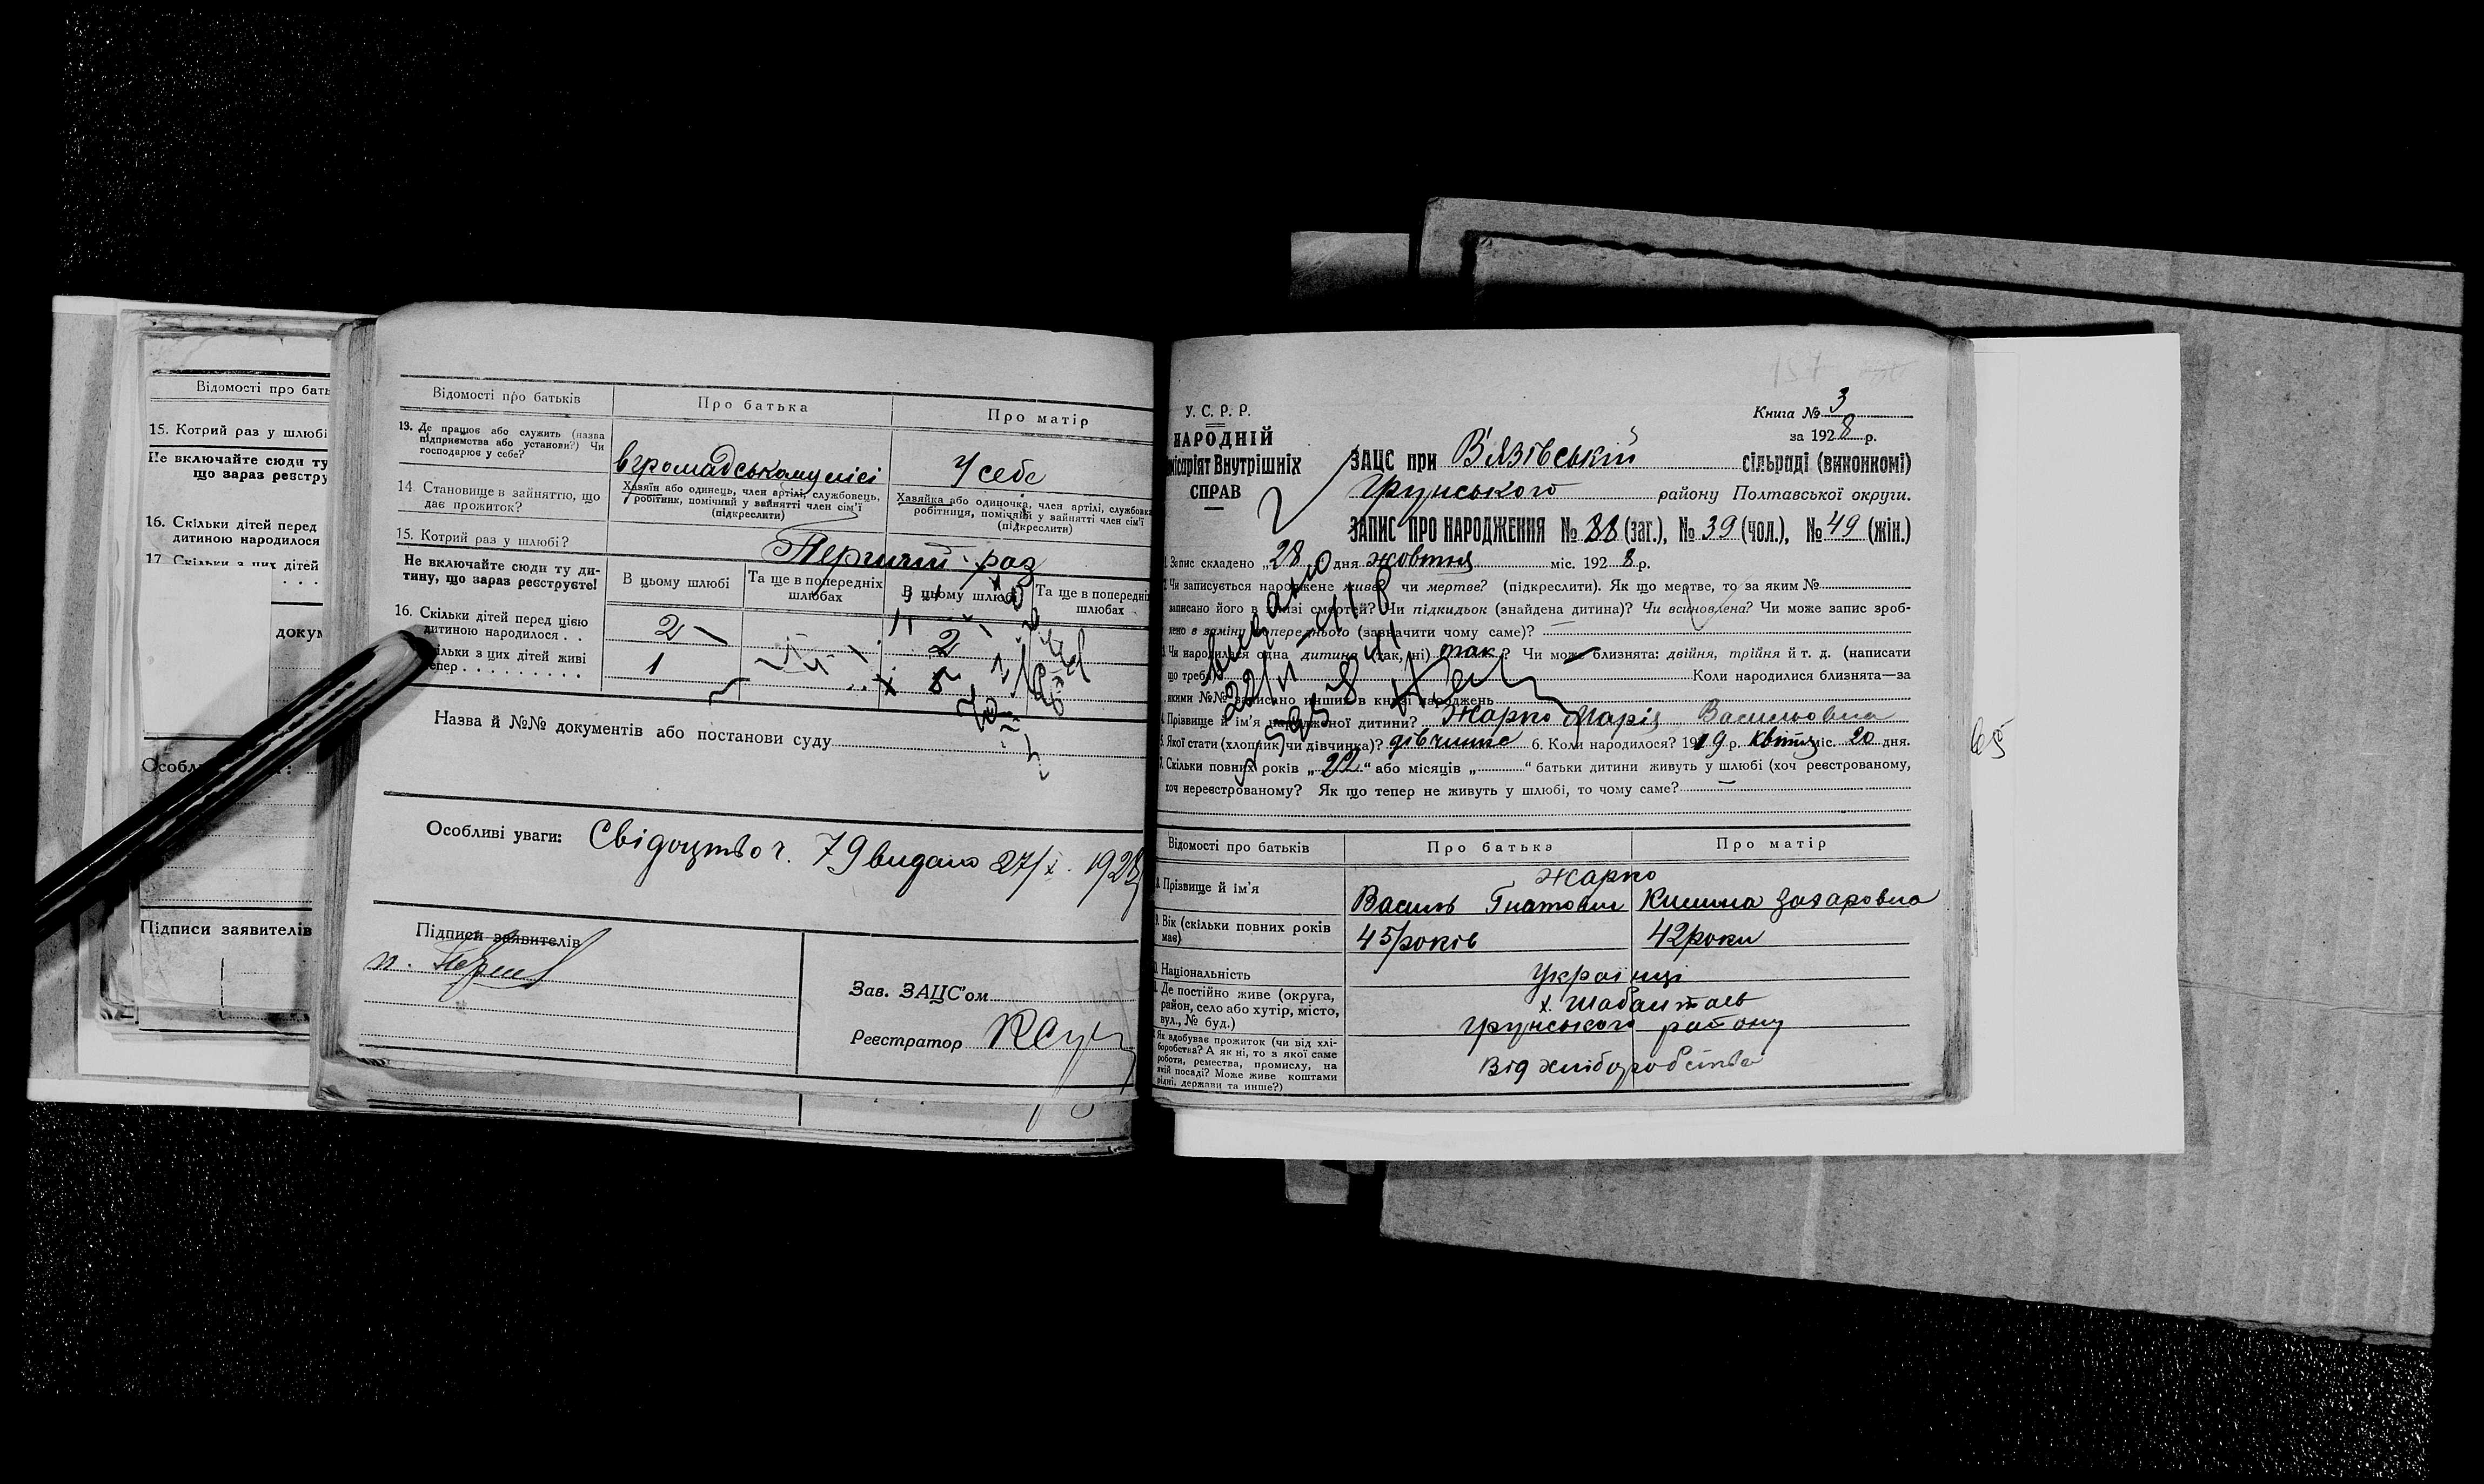 Відомості про бать
15. Котрий раз у шлюбі
Не включайте сюди ту
що зараз реєстру
16. Скільки дітей перед
дитиною народилося
17. Скільки з цих дітей
докум
Підписи заявителів
Відомості про батьків
Про батька
Про матір
13. Де працює або служить (назва
підприємства або установи?) Чи
господарює у себе?
в громадському лісі
У себе
14. Становище в зайняттю, що
дає прожиток?
Хазяїн або одинець, член артілі, службовець,
робітник, помічний у зайнятті член сім'ї
(підкреслити)
Хазяйка або одиночка, член артілі, службовка
робітниця, помічний у зайнятті член сім'ї
(підкреслити)
15. Котрий раз у шлюбі?
Перший раз
Не включайте сюди ту ди-
тину, що зараз реєструєте!
В цьому шлюбі
Та ще в попередніх
шлюбах
В цьому шлюбі
Та ще в попередні
шлюбах
16. Скільки дітей перед цією
дитиною народилося . .
2
2
ільки з цих дітей живі
епер . . . . . . . . .
1
Назва й №№ документів або постанови суду
Особливі уваги: Свідоцтво ч. 79 видано 27/X 1928
Підписи заявителів
Зав. ЗАЦС'ом
Реєстратор
157
У. С. Р. Р.
НАРОДНІЙ
місаріят Внутрішніх
СПРАВ
Книга № 3
за 1928 р.
ЗАЦС при В'язівській сільраді (виконкомі)
Грунського району Полтавської округи.
ЗАПИС ПРО НАРОДЖЕННЯ № 88 (заг.), № 39 (чол.), № 49 (жін.)
Запис складено „28 дня жовтня міс. 1928 р.
Чи записується народжене живе? чи мертве? (підкреслити). Як що мертве, то за яким №
записано його в книзі смертей? Чи підкидьок (знайдена дитина)? Чи всиновлена? Чи може запис зроб-
лено в заміну попереднього (зазначити чому саме)?
Чи народилася одна дитина (так, ні) так? Чи може близнята: двійня, трійня й т. д. (написати
що треба) Коли народилися близнята—за
якими №№ записано инших в книзі народжень
Прізвище й ім'я народженої дитини? Жарко Марія Васильовна
Якої стати (хлопчик чи дівчинка)? дівчинка 6. Коли народилося? 1919 р. квітня міс. 20 дня.
Скільки повних років „22“ або місяців „ “ батьки дитини живуть у шлюбі (хоч реєстрованому,
хоч нереєстрованому? Як що тепер не живуть у шлюбі, то чому саме?
65
Відомості про батьків
Про батька
Про матір
Прізвище й ім'я
Жарко
Василь Гнатович
Килина Захаровна
Вік (скільки повних років
має)
45 років
42 роки
Національність
Українці
Де постійно живе (округа,
район, село або хутір, місто,
вул., № буд.)
х. Шабалтаєв
Грунського району
Як здобуває прожиток (чи від хлі-
боробства? А як ні, то з якої саме
роботи, ремества, промислу, на
якій посаді? Може живе коштами
рідні, держави та инше?)
Від хліборобства